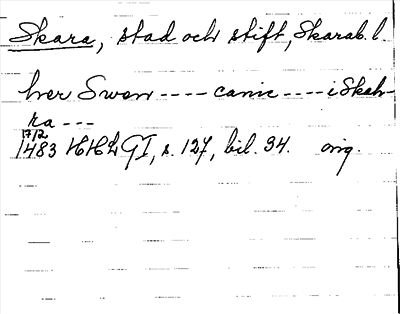 Skara, stad och stift, Skarab. l.
her Swen ---- canic ---- i Skah-
ra ---
17/2
1483 HHL GI, s. 127, bil. 94. orig.